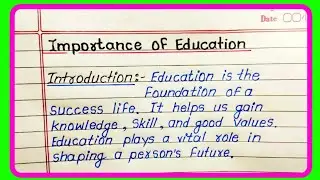 Date
Importance of Education
Introduction:- Education is the
Foundation of a
success life. It helps us gain
Knowledge, Skill, and good Values.
Education plays a vital role in
shaping a person's future.